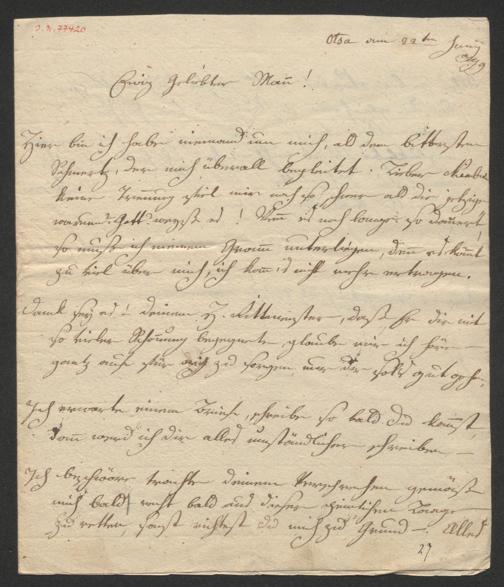 J.N. 77420
Otsa am 22ten Juny
Ewig Geliebter Mañ!
Hier bin ich habe niemand um mich, als den bittersten
Schmertz, der mich überall begleitet. Lieber
keine Trennung fiel mir noch so schwer als die jetzige
warum? Gott weiß es! Wenn es noch lange so dauert
so muß ich meinem Gram unterliegen, denn es kommt
zu viel über mich, ich kann es nicht mehr ertragen.
Dank sey es! deinem H. Rittmeister, daß Er dir mit
so vieler Schonung begegnete, glaube mir ich höre
gantz auf für mich zu sorgen wen dir soll gut geh.
Ich erwarte einen Brief, schreibe so bald du kannst,
dann werd ich dir alles umständlicher schreiben —
Ich beschwöre trachte deinem Versprechen gemäß
mich bald recht bald aus dieser peinlichen Laage
zu retten, sonst richtest du mich zu Grund —. Alles
27